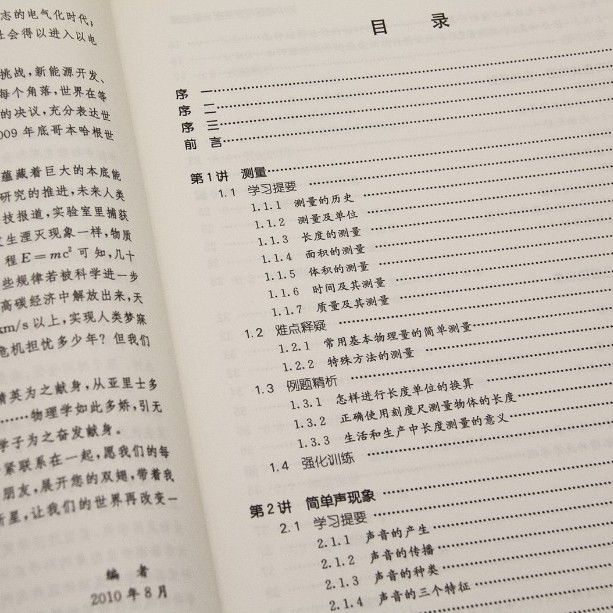 志的电气化时代,
社会得以进入以电
挑战,新能源开发、
每个角落,世界在等
的决议,充分表达世
009年底哥本哈根世
蕴藏着巨大的本底能
研究的推进,未来人类
技报道,实验室里捕获
发生湮灭现象一样,物质
程E=mc²可知,几十
些规律若被科学进一步
高碳经济中解放出来,天
km/s以上,实现人类梦寐
危机担忧多少年?但我们
精英为之献身,从亚里士多
………物理学如此多娇,引无
学子为之奋发献身。
紧联系在一起,愿我们的每
朋友,展开您的双翅,带着我
新星,让我们的世界再改变一
编 者
2010年8月
目 录
序 一
序 二
序 三
前 言
第1讲 测量
1.1 学习提要
1.1.1 测量的历史
1.1.2 测量及单位
1.1.3 长度的测量
1.1.4 面积的测量
1.1.5 体积的测量
1.1.6 时间及其测量
1.1.7 质量及其测量
1.2 难点释疑
1.2.1 常用基本物理量的简单测量
1.2.2 特殊方法的测量
1.3 例题精析
1.3.1 怎样进行长度单位的换算
1.3.2 正确使用刻度尺测量物体的长度
1.3.3 生活和生产中长度测量的意义
1.4 强化训练
第2讲 简单声现象
2.1 学习提要
2.1.1 声音的产生
2.1.2 声音的传播
2.1.3 声音的种类
2.1.4 声音的三个特征